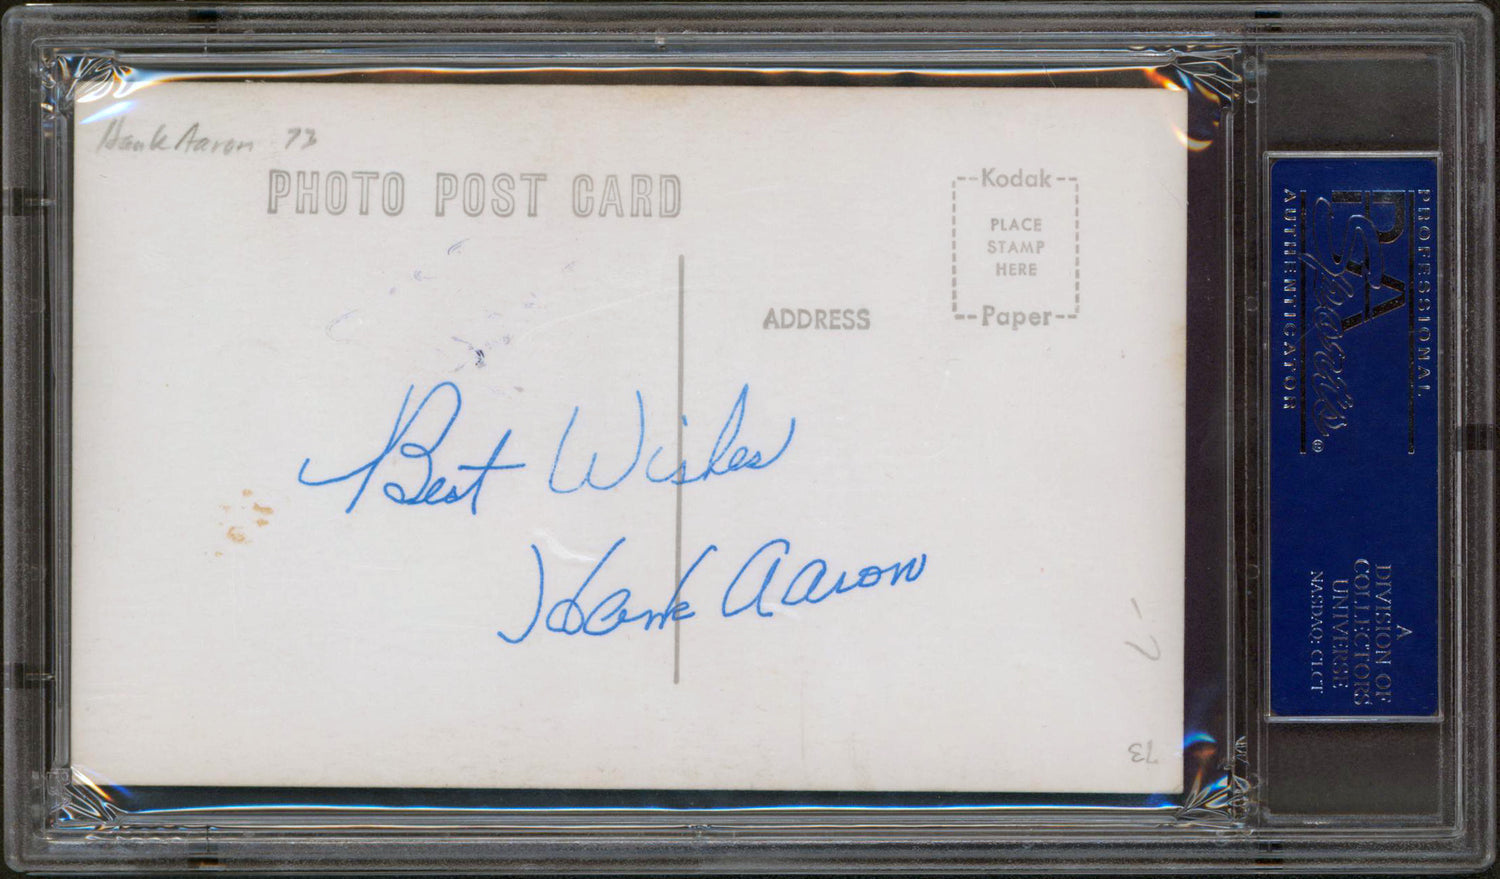 Hank Aaron 73
PHOTO POST CARD
Kodak
PLACE
STAMP
HERE
Paper
ADDRESS
Best Wishes
Hank Aaron
-7
73
PROFESSIONAL
PSA
Sports
AUTHENTICATOR
®
A
DIVISION OF
COLLECTORS
UNIVERSE
NASDAQ: CLCT